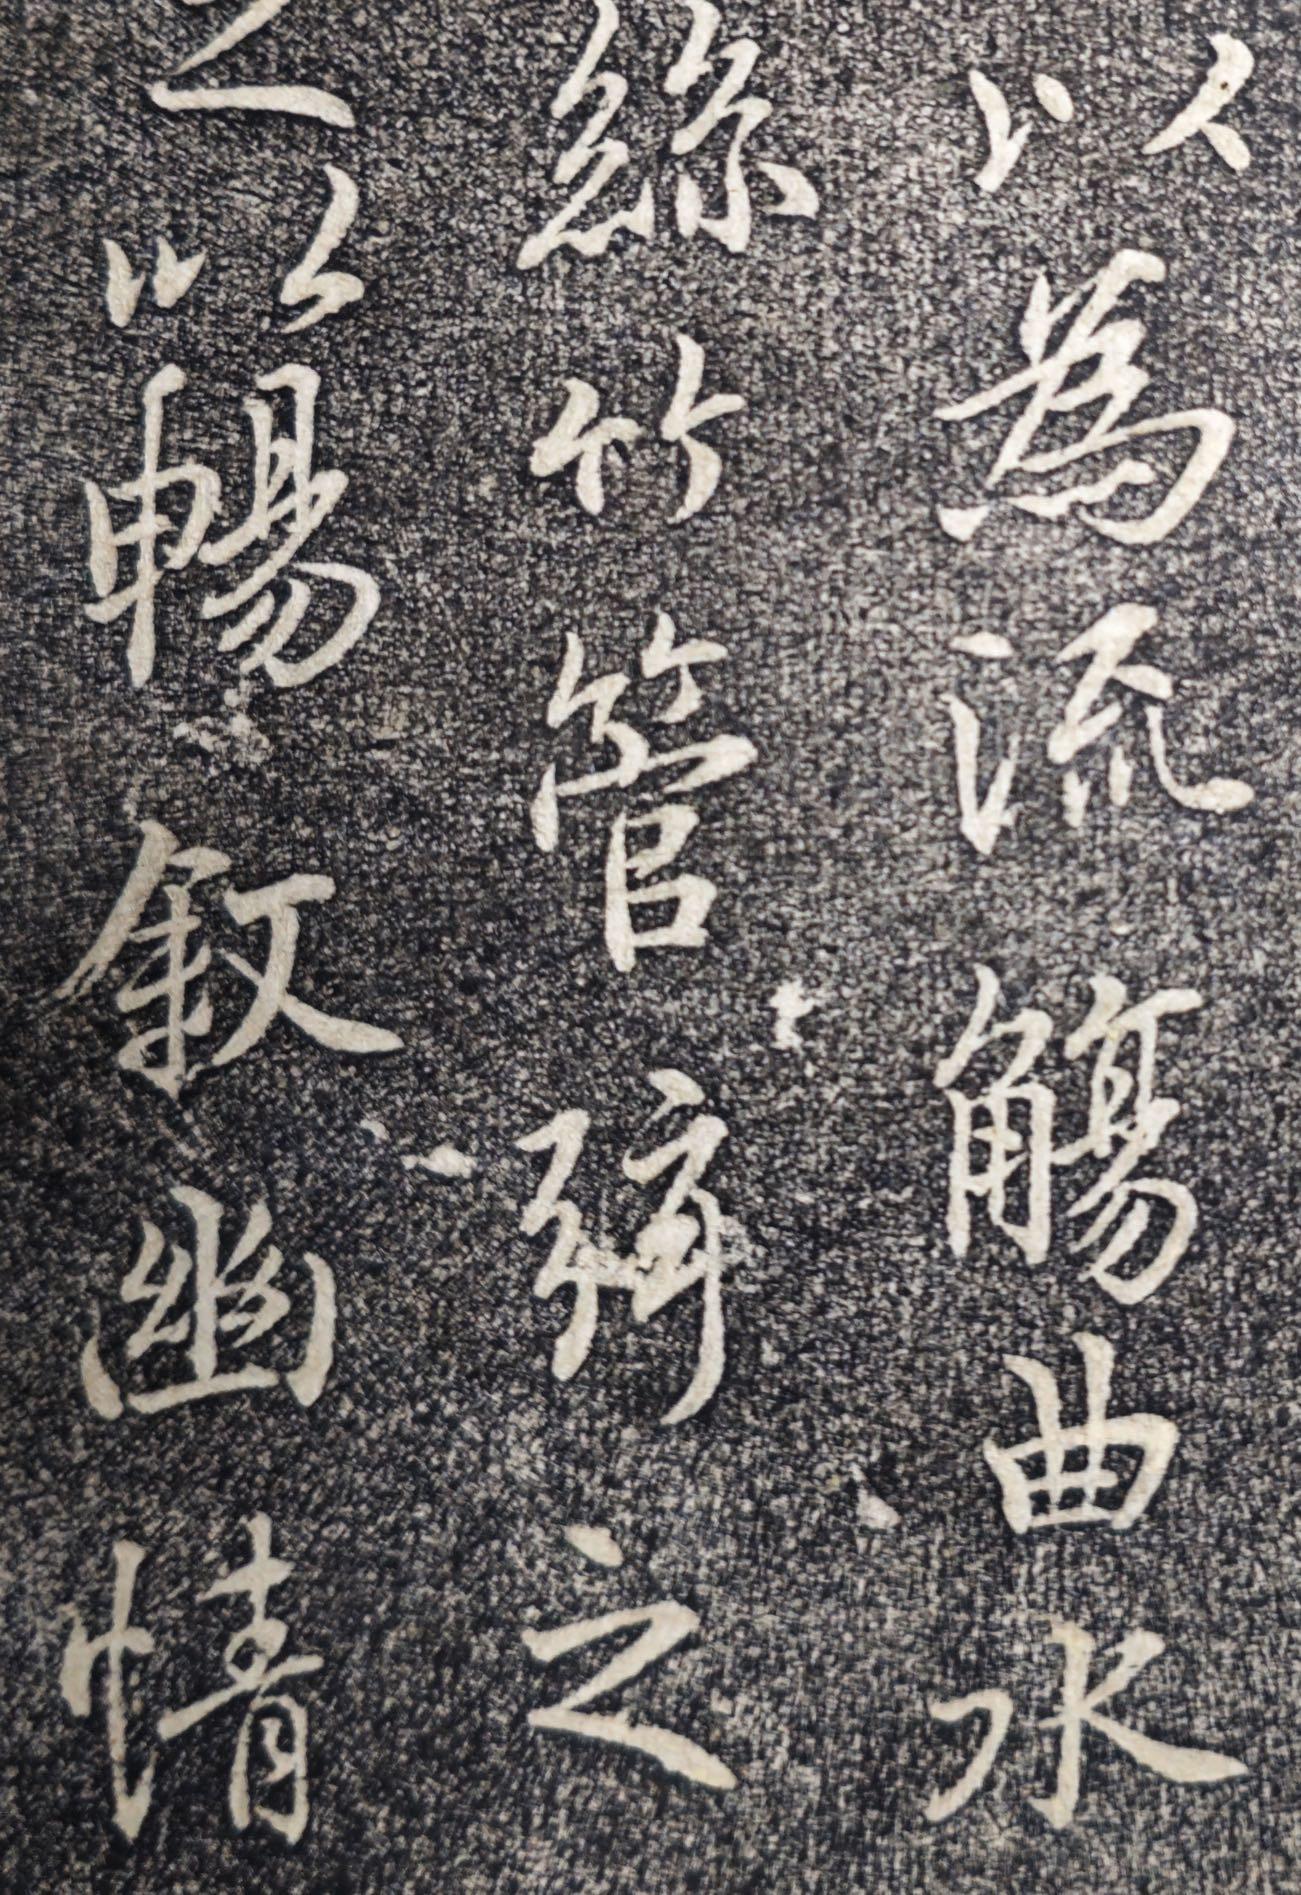 以為流觴曲水
絲竹管弦之
足以暢敘幽情